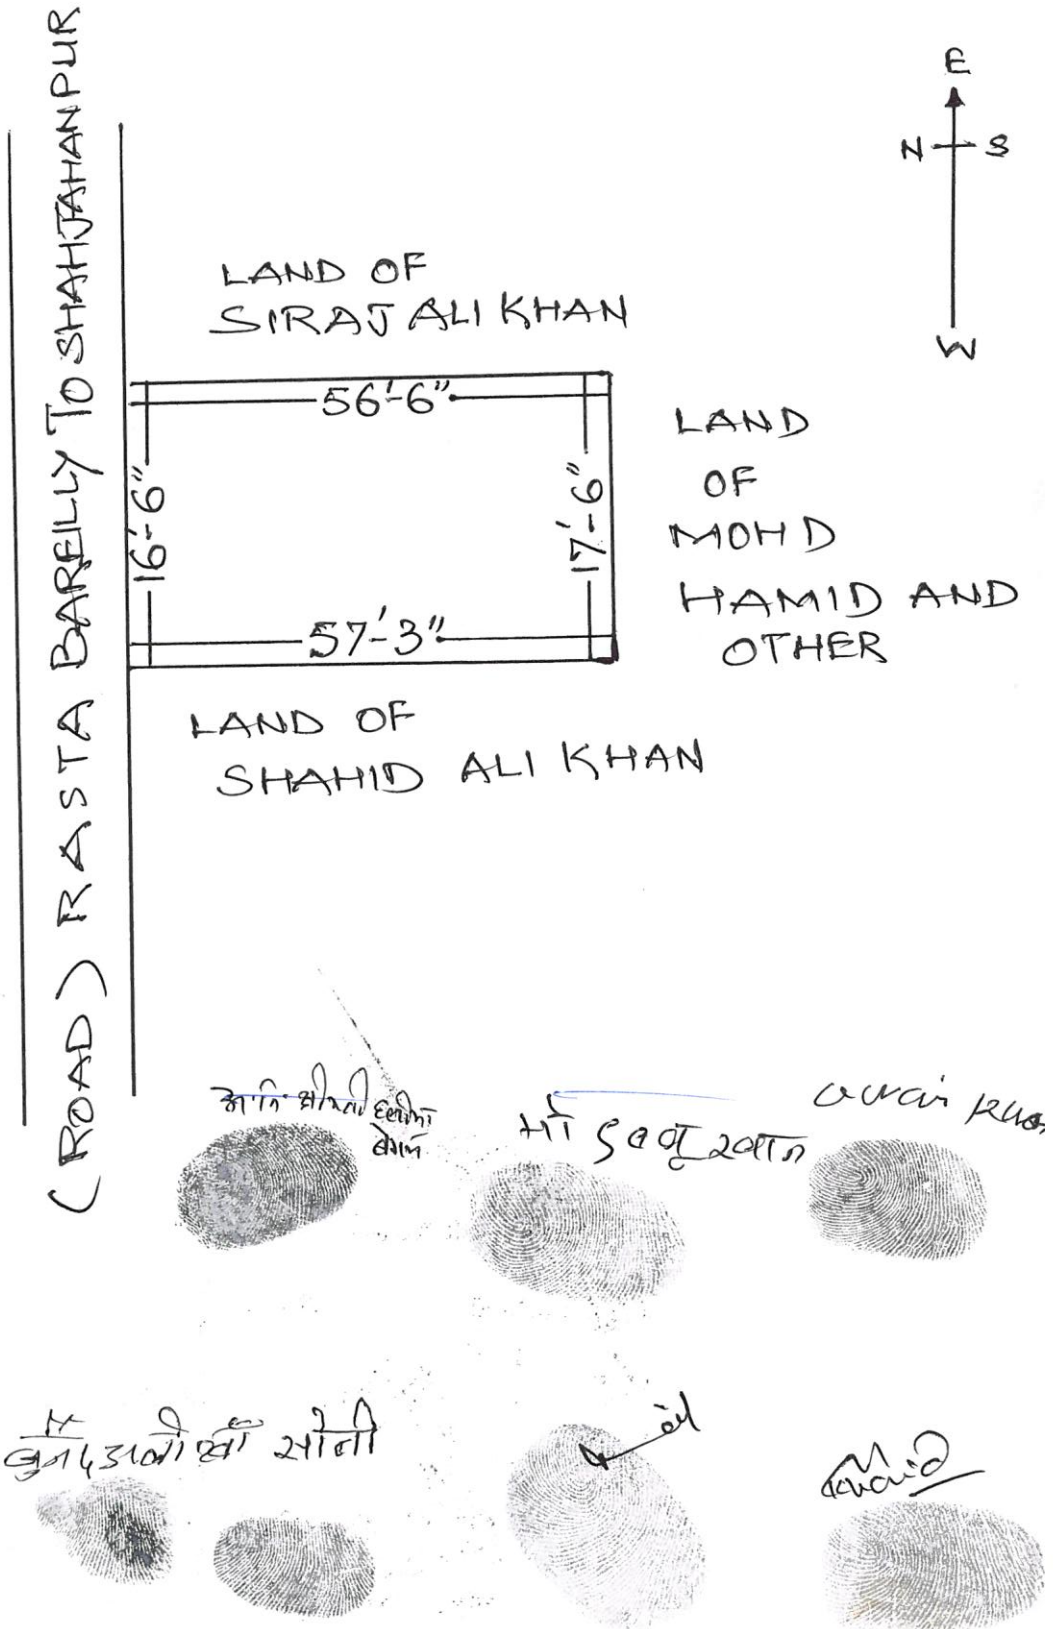 (ROAD) RASTA BAREILLY TO SHAHJAHANPUR
E
N S
W
LAND OF
SIRAJ ALI KHAN
56'-6"
16'-6"
17'-6"
57'-3"
LAND
OF
MOHD
HAMID AND
OTHER
LAND OF
SHAHID ALI KHAN
बेगम